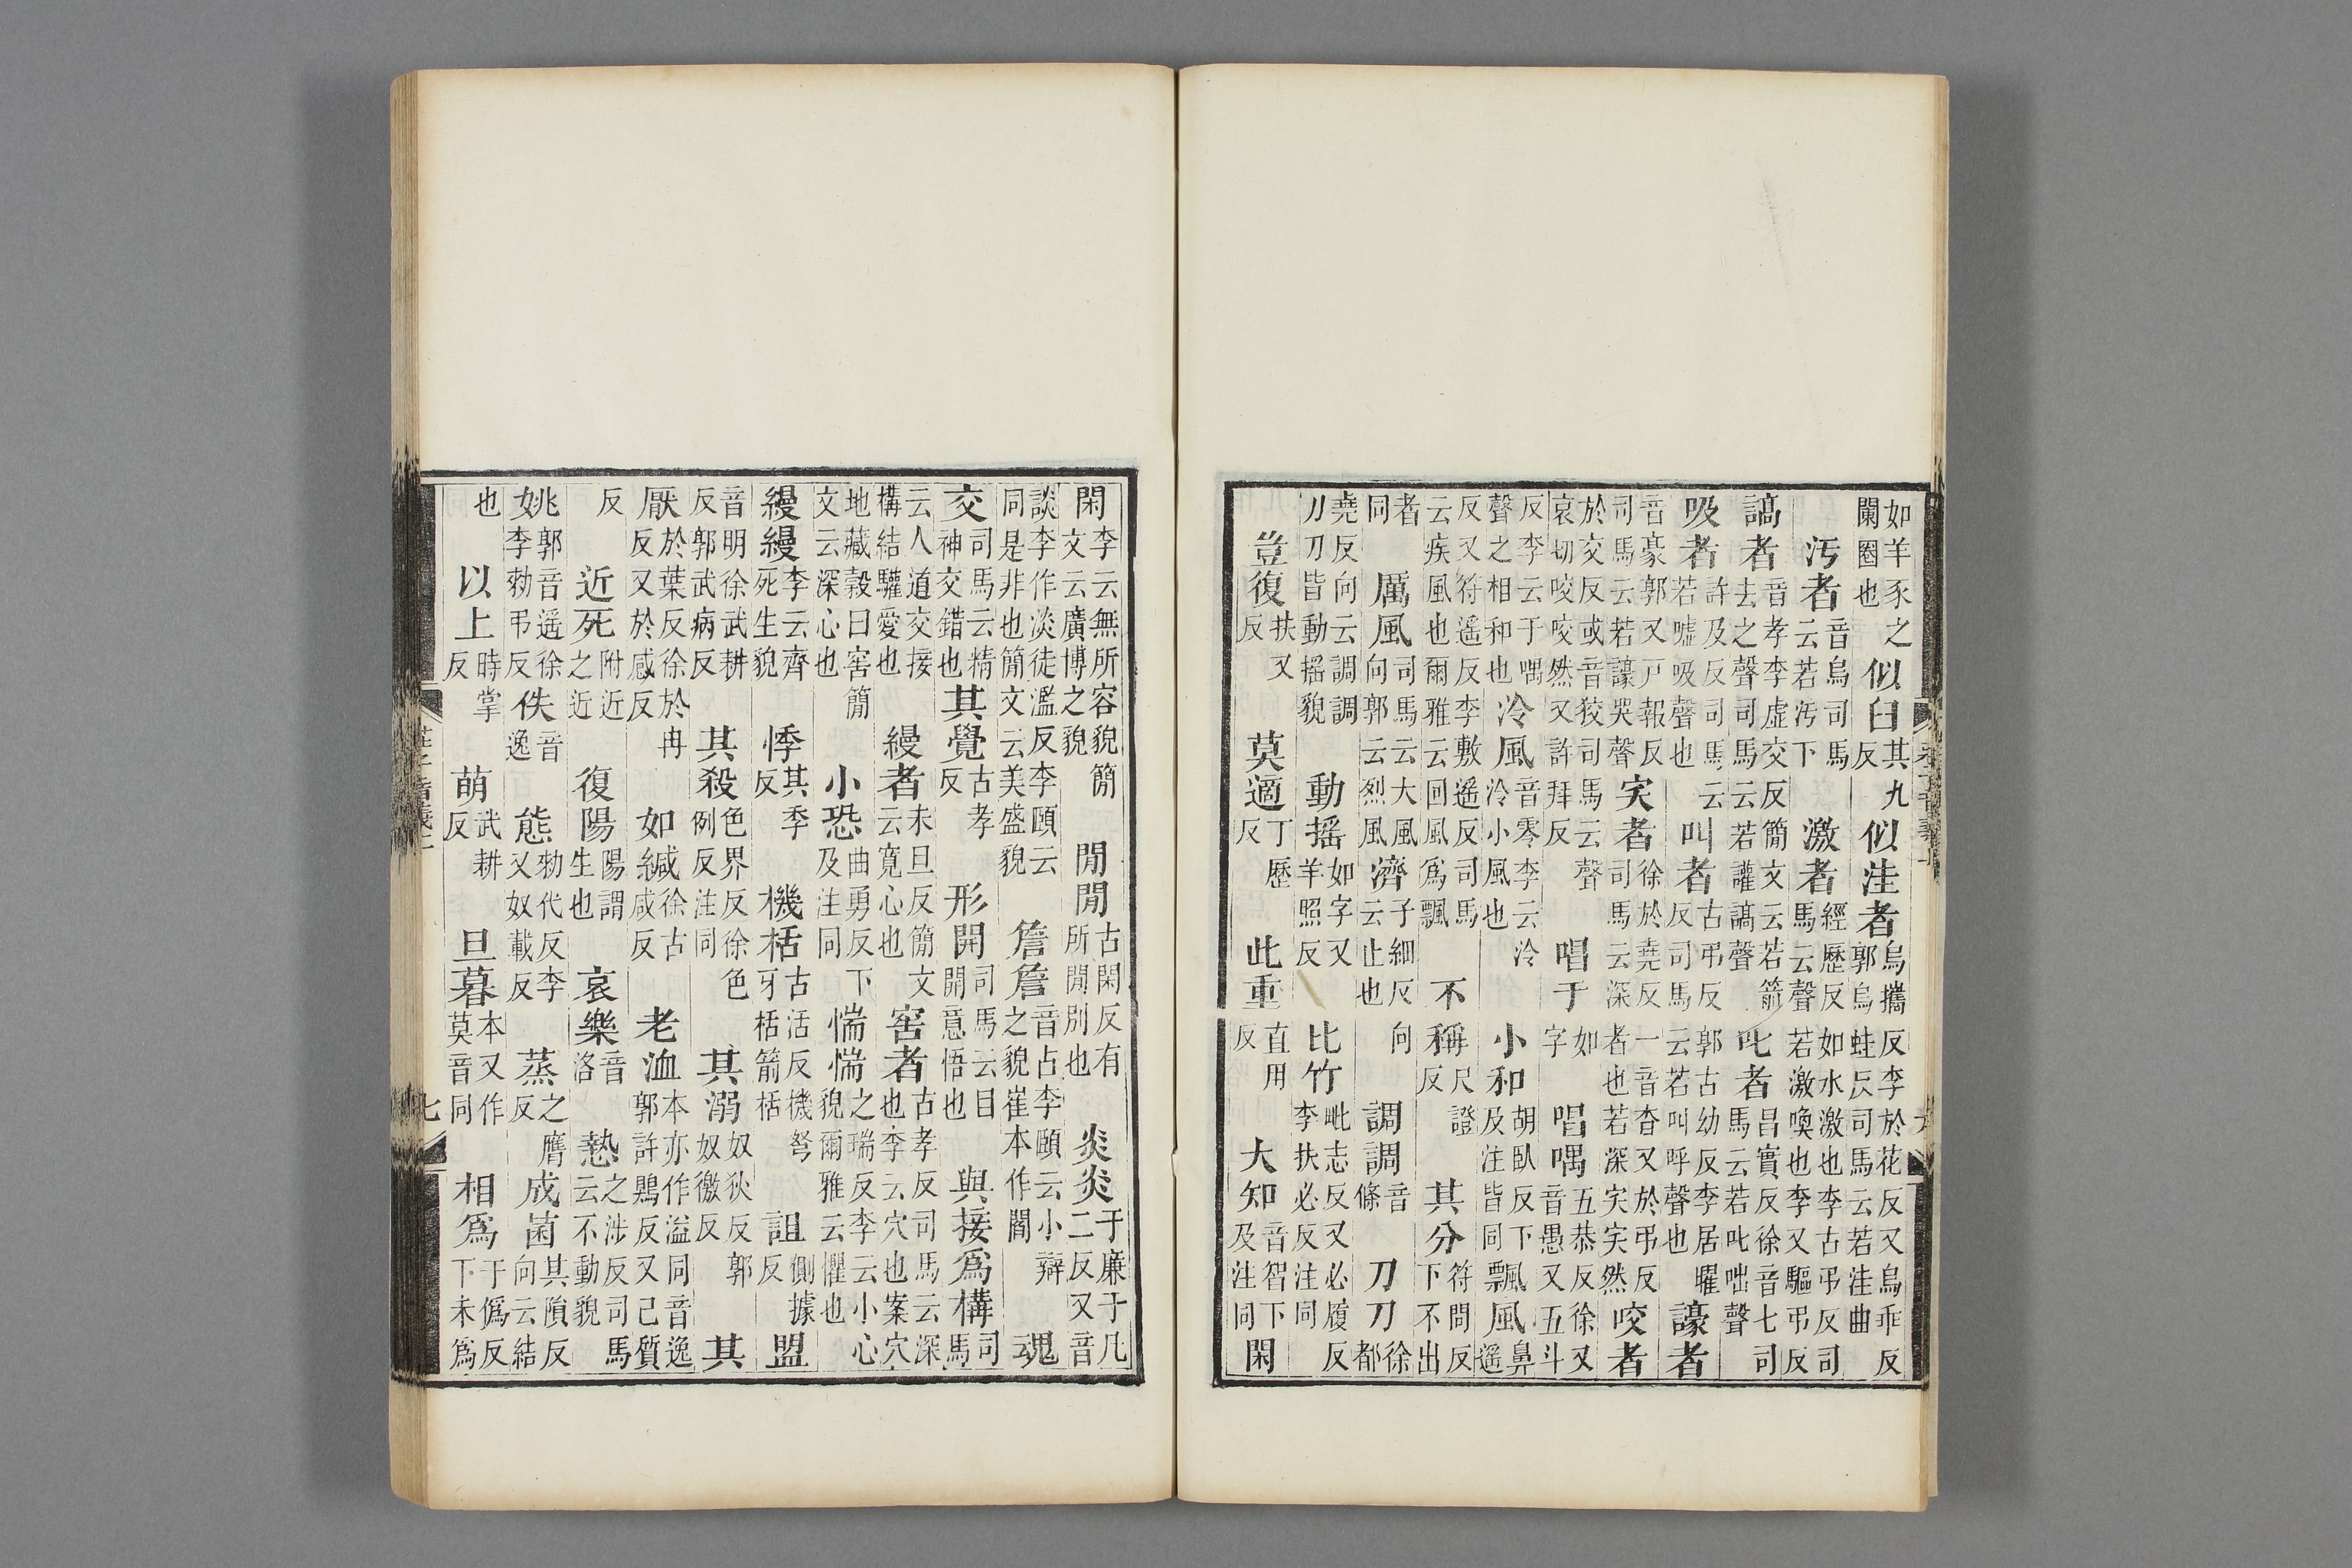 如羊豕之闌圈也似臼其九反似洼者烏攜反李於花反又烏乖反郭烏蛙反司馬云若洼曲
汚者音烏司馬云若汚下激者經歷反如水激也李古弔反司馬云聲若激喚也李又驅弔反
謞者音孝李虛交反簡文云若箭去之聲司馬云若讙謞聲叱者昌實反徐音七司馬云若叱咄聲
吸者許及反司馬云若噓吸聲也叫者古弔反郭古幼反李居曜反司馬云若叫呼聲也譹者
音豪郭又戸報反司馬云若譹哭聲宎者徐於堯反一音杳又於弔反司馬云深者也若深宎宎然咬者
於交反或音狡司馬云聲哀切咬咬然又許拜反唱于如字唱喁五恭反徐又音愚又五斗
反李云于喁聲之相和也泠風音零李云泠泠小風也小和胡臥反下及注皆同飄風鼻遥
反又符遥反李敷遥反司馬云疾風也爾雅云回風爲飄不稱尺證反其分符問反下不出
者同厲風司馬云大風向郭云烈風濟子細反向云止也調調音條刀刀徐都
堯反向云調調刀刀皆動揺貌動揺如字又羊照反比竹毗志反又必履反李扶必反注同
豈復扶又反莫適丁歷反此重直用反大知音智下及注同閑
閑李云無所容貌簡文云廣博之貌閒閒古閑反有所閒別也炎炎于廉于凡二反又音
談李作淡徒濫反李頤云同是非也簡文云美盛貌詹詹音占李頤云小辯之貌崔本作閻魂
交司馬云精神交錯也其覺古孝反形開司馬云目開意悟也與接爲構司馬
云人道交接構結驩愛也縵者末旦反簡文云寬心也窖者古孝反司馬云深也李云穴也案穴
地藏穀曰窖簡文云深心也小恐曲勇反下及注同惴惴之瑞反李云小心貌爾雅云懼也
縵縵李云齊死生貌悸其季反機栝古活反機弩牙栝箭栝詛側據反盟
音明徐武耕反郭武病反其殺色界反徐色例反注同其溺奴狄反郭奴徼反其
厭於葉反徐於冉反又於感反如緘徐古咸反老洫本亦作溢同音逸郭許鶪反又己質
反近死附近之近復陽陽謂生也哀樂音洛慹之涉反司馬云不動貌
姚郭音遥徐李勑弔反佚音逸態勑代反李又奴載反蒸之膺反成菌其隕反向云結
也以上時掌反萌武耕反旦暮本又作莫音同相爲于僞反下未爲
七